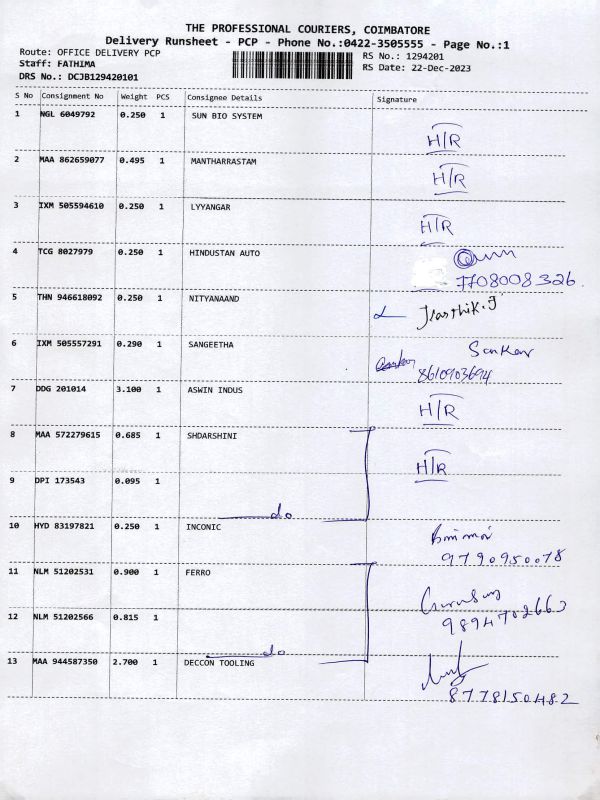 THE PROFESSIONAL COURIERS, COIMBATORE
Delivery Runsheet - PCP - Phone No.:0422-3505555 - Page No.:1
Route: OFFICE DELIVERY PCP
RS No.: 1294201
Staff: FATHIMA
RS Date: 22-Dec-2023
DRS No.: DCJB129420101
S No Consignment No Weight PCS Consignee Details Signature
1 NGL 6049792 0.250 1 SUN BIO SYSTEM
H/R
2 MAA 862659077 0.495 1 MANTHARRASTAM
H/R
3 IXM 505594610 0.250 1 LYYANGAR
H/R
4 TCG 8027979 0.250 1 HINDUSTAN AUTO
7708008326
5 THN 946618092 0.250 1 NITYANAAND
Karthik.J
6 IXM 505557291 0.290 1 SANGEETHA
Sankar
8610903694
7 DDG 201014 3.100 1 ASWIN INDUS
H/R
8 MAA 572279615 0.685 1 SHDARSHINI
H/R
9 DPI 173543 0.095 1
do
10 HYD 83197821 0.250 1 INCONIC
9790950078
11 NLM 51202531 0.900 1 FERRO
9894702663
12 NLM 51202566 0.815 1
do
13 MAA 944587350 2.700 1 DECCON TOOLING
8778150482